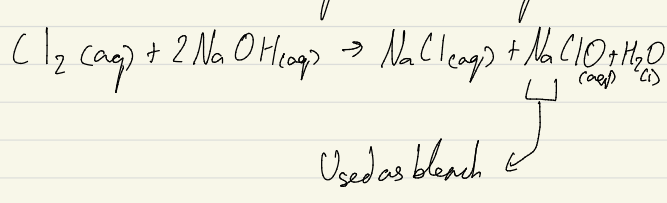 Cl₂ (aq) + 2NaOH(aq) → NaCl(aq) + NaClO(aq) + H₂O(l)
Used as bleach